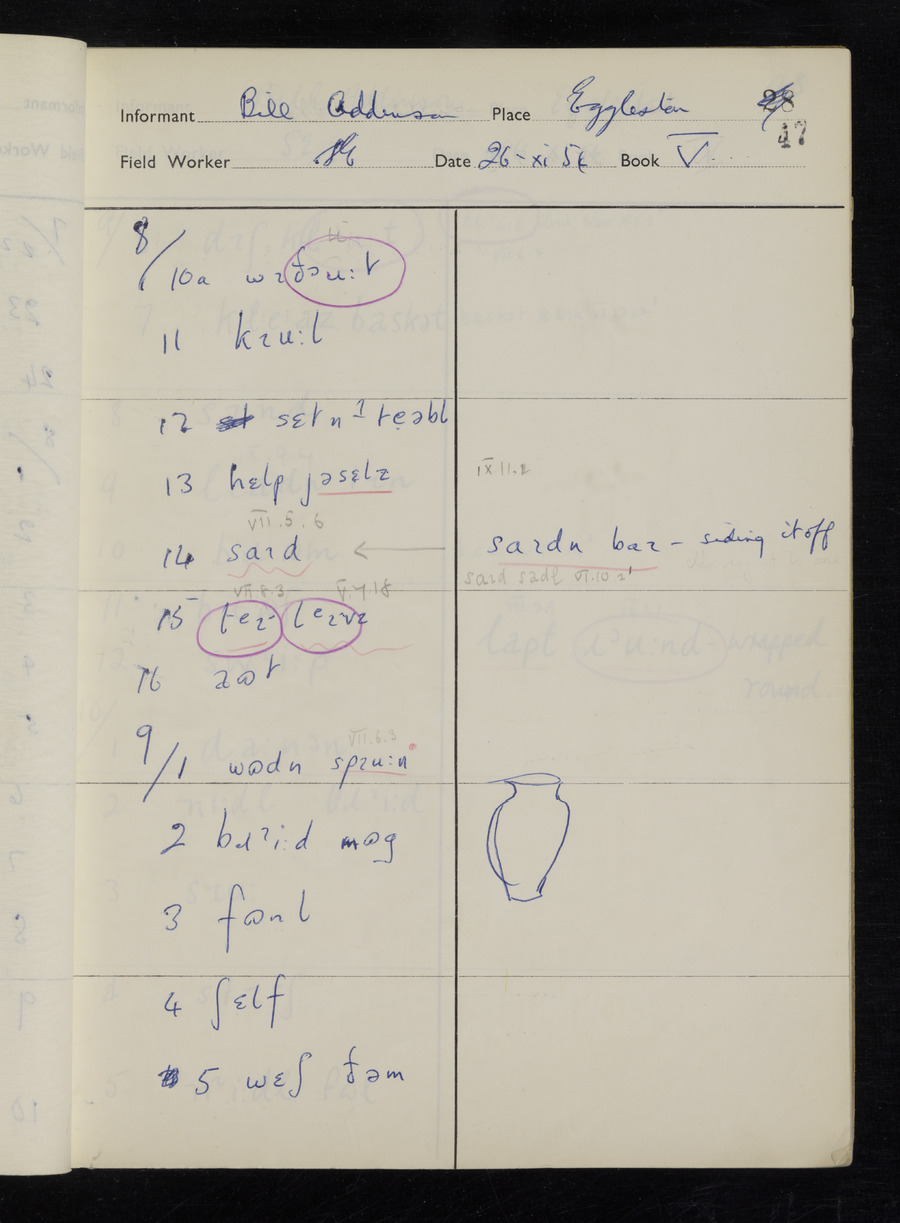 Informant Bill Addinson Place Eggleston
47
Field Worker Date 26-xi 54 Book V.
8/
10a wɪðəu:t
11 kɹu:l
12 sɛt n ʔ tẹəbl
13 hɛlp jəsɛlz IX 11.2
VII.5.6
14 saɪd ← saɪdn baɪ – siding it off
saɪd sadl VI.10.2'
VII.8.3 V.7.18
15
16 ɹɷt
9/
VII.6.3
1 wɷdn spɹu:n
2 bɹi:d mɷg
3 fɷnl
4 ʃɛlf
5 wɛʃ ðəm